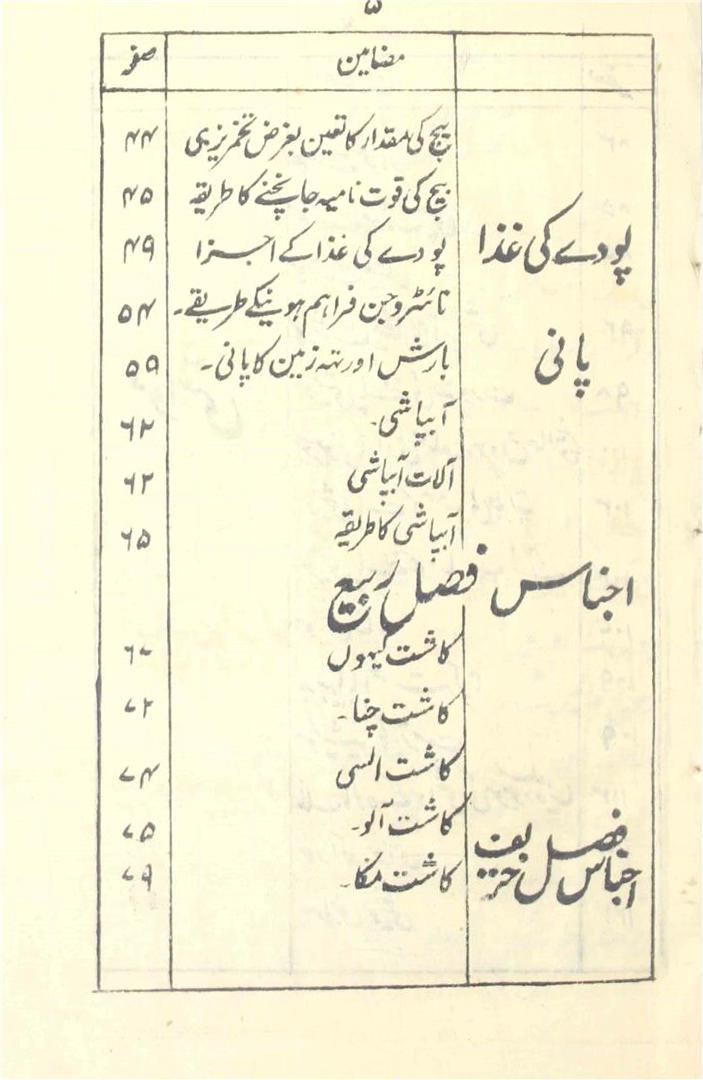 ۵
مضامین صفحہ
بیج کی مقدار کا تعین بغرض تخمریزی ۴۴
بیج کی قوت نامیہ جانچنے کا طریقہ ۴۵
پودے کی غذا پودے کی غذا کے اجزا ۴۹
نائٹروجن فراہم ہونیکے طریقے۔ ۵۴
پانی بارش اور تہ زمین کا پانی۔ ۵۹
آبپاشی۔ ۶۲
آلات آبپاشی ۶۲
آبپاشی کا طریقہ ۶۵
اجناس فصل ربیع
کاشت گیہوں ۶۷
کاشت چنا۔ ۷۲
کاشت السی ۷۴
کاشت آلو۔ ۷۵
اجناس فصل خریف کاشت مکا۔ ۷۹